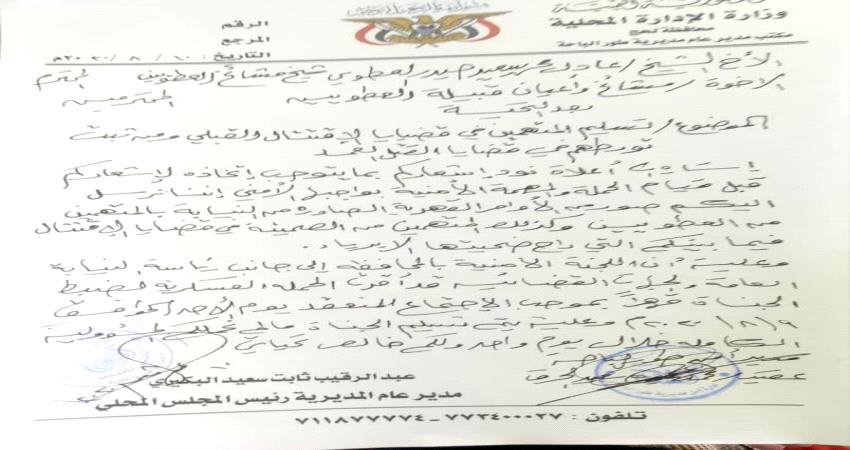 وزارة الإدارة المحلية
محافظة لحج
مكتب مدير عام مديرية طور الباحة
الرقم
المرجع
التاريخ : ١٠ / ٨ / ٢٠٢٠م
الأخ الشيخ / عادل سعيد العطوي شيخ مشائخ العطويين المحترم
الاخوة / مشائخ وأعيان قبيلة العطويين المحترمين
بعد التحية
الموضوع / تسليم المتهمين في قضايا الاقتتال القبلي ومن ثبت
تورطهم في قضايا القتل العمد
إشارة الى أعلاه نود إشعاركم بما يتوجب إتخاذه لإشعاركم
قبل قيام الحملة والمهمة الأمنية بواجبها الأمني إننا نرسل
اليكم صور من الأوامر القهرية الصادرة من النيابة بالمتهمين
من العطويين وكذلك المتهمين من الصميتة في قضايا الاقتتال
فيما بينكم التي راح ضحيتها الابرياء .
وعليه أن اللجنة الأمنية بالمحافظة إلى جانب رئاسة النيابة
العامة والجهات القضائية قد أقرت الحملة العسكرية لضبط
الجناة قهراً بموجب الإجتماع المنعقد يوم الأحد الموافق
٢٠٢٠م وعليه يتم تسليم الجناة مالم تحملكم المسؤولية
الكاملة خلال يوم واحد ولكم خالص تحياتي
عبد الرقيب ثابت سعيد البكيري
مدير عام المديرية رئيس المجلس المحلي
تلفون : ٧٧٣٤٠٠٠٢٧ - ٧١١٨٧٧٧٧٤